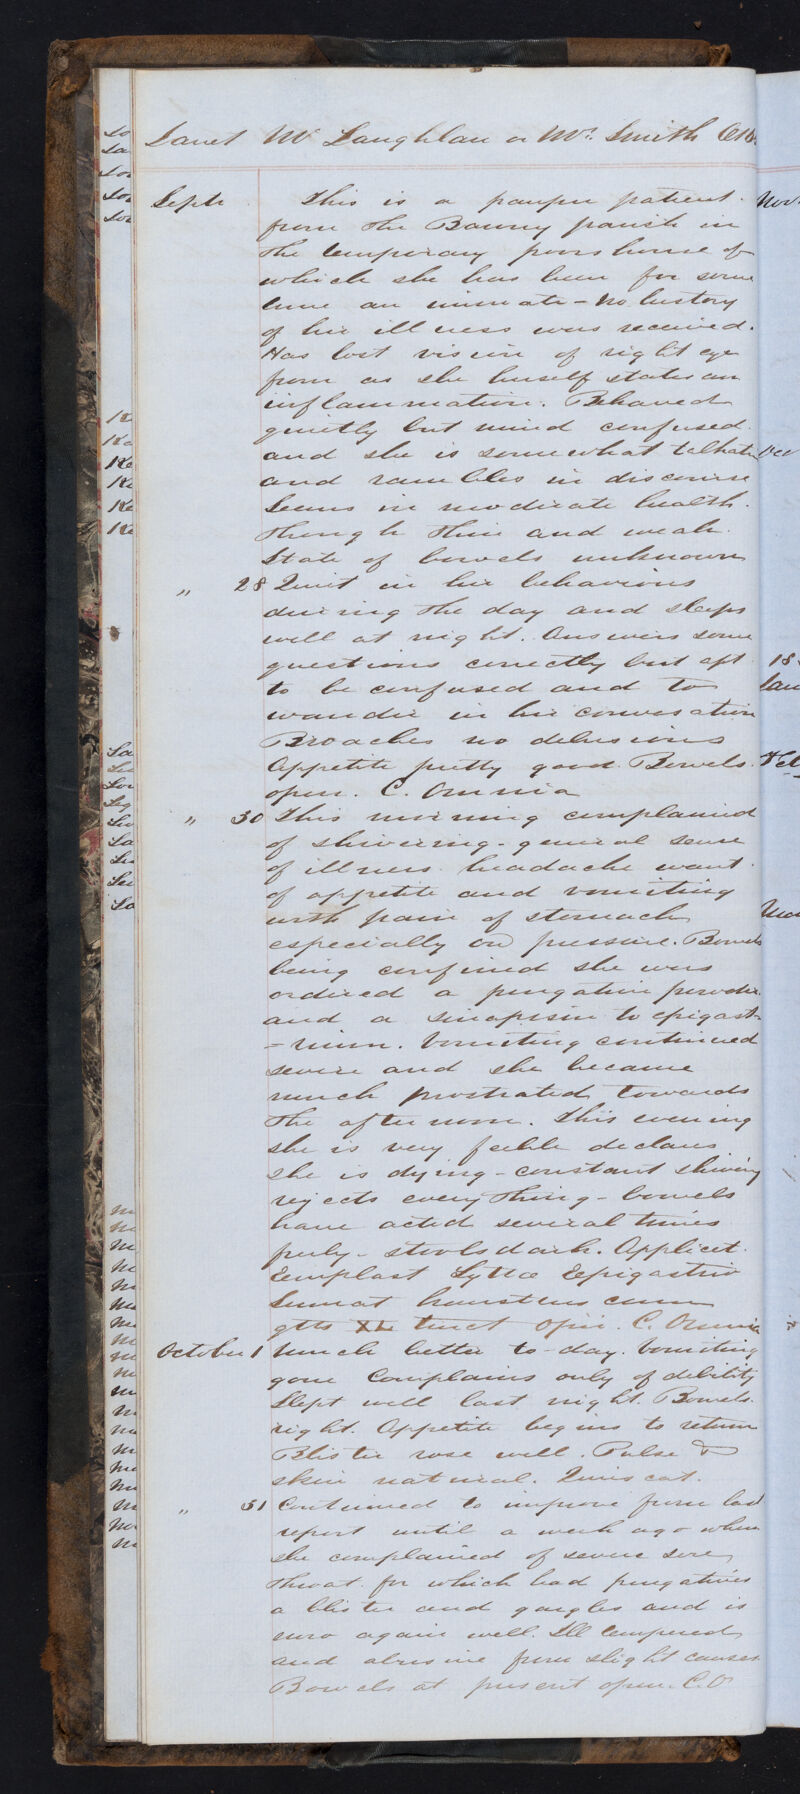 Janet McLaughlan or Mrs. Smith
Septr This is a pauper patient
from the Barony parish in
the temporary poorshouse of
which she has been for some
time an inmate - No history
of her illness was received.
Has lost vision of right eye
from as she herself states an
inflammation. Behaved
quietly but mind confused
and she is somewhat talkative
and rambles in discourse
Seems in moderate health
though thin and weak
State of bowels unknown
" 28 Quiet in her behaviour
during the day and sleeps
well at night. Answers some
questions correctly but apt
to be confused and to
wander in her conversation
Broaches no delusions
Appetite pretty good. Bowels
open. C. Omnia
" 30 This morning complained
of shivering - general sense
of illness headache want
of appetite and vomiting
with pain of stomach
especially on pressure. Bowels
being confined she was
ordered a purgative powder
and a sinapism to epigast-
-rium. Vomiting continued
severe and she became
much prostrated towards
the afternoon. This evening
she is very feeble declares
she is dying - constant shivering
rejects everything - bowels
have acted several times
freely - stools dark. Applicet.
Emplast Lyttæ Epigastrio
Sumat haustus cum
gtts XL Tinct Opii. C. Omnia
October 1 Much better to-day. Vomiting
gone Complains only of debility
Slept well last night. Bowels
right. Appetite begins to return
Blister rose well. Pulse &
skin natural. Quiescat.
" 31 Continued to improve from last
report until a week ago when
she complained of severe sore
throat for which had purgatives
a blister and gargles and is
now again well. Ill tempered
and abusive from slight causes
Bowels at present open. C. O
Nov
Dec
18
Jan
Feb